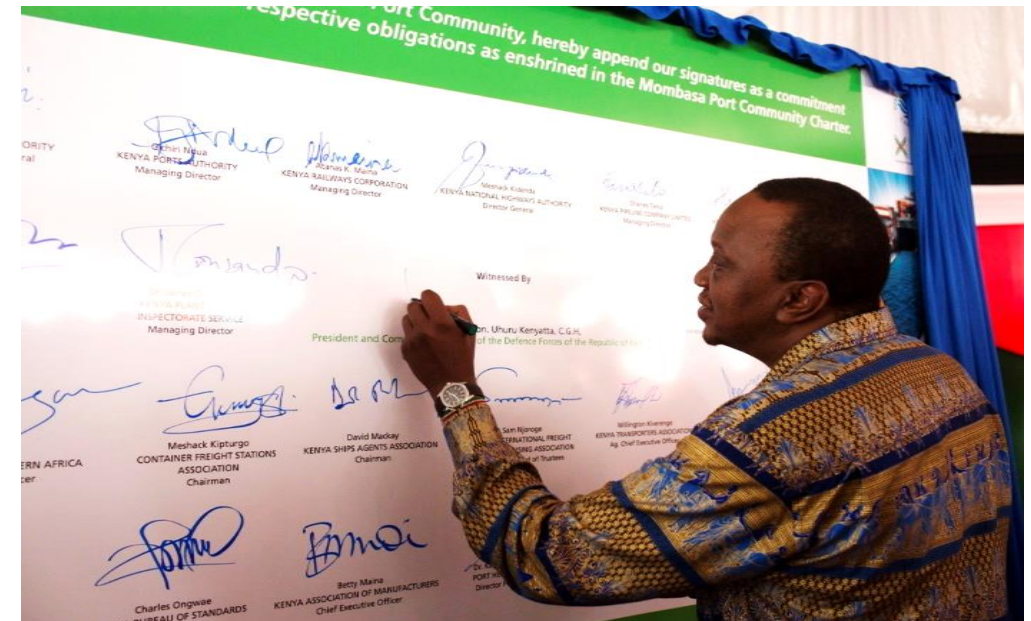 ort Community, hereby append our signatures as a commitment
respective obligations as enshrined in the Mombasa Port Community Charter.
ORITY
ral
Gichiri Ndua
KENYA PORTS AUTHORITY
Managing Director
Atanas K. Maina
KENYA RAILWAYS CORPORATION
Managing Director
Meshack Kidenda
KENYA NATIONAL HIGHWAYS AUTHORITY
Director General
Charles Tanui
KENYA PIPELINE COMPANY LIMITED
Managing Director
KENYA PLANT
INSPECTORATE SERVICE
Managing Director
Witnessed By
on. Uhuru Kenyatta, C.G.H,
President and Com of the Defence Forces of the Republic of
ERN AFRICA
cer
Meshack Kipturgo
CONTAINER FREIGHT STATIONS
ASSOCIATION
Chairman
David Mackay
KENYA SHIPS AGENTS ASSOCIATION
Chairman
Sam Njoroge
TERNATIONAL FREIGHT
SING ASSOCIATION
of Trustees
Willington Kiverenge
KENYA TRANSPORTERS ASSOCIATION
Ag. Chief Executive Officer
Charles Ongwae
UREAU OF STANDARDS
Betty Maina
KENYA ASSOCIATION OF MANUFACTURERS
Chief Executive Officer
Dr.
PORT
Director